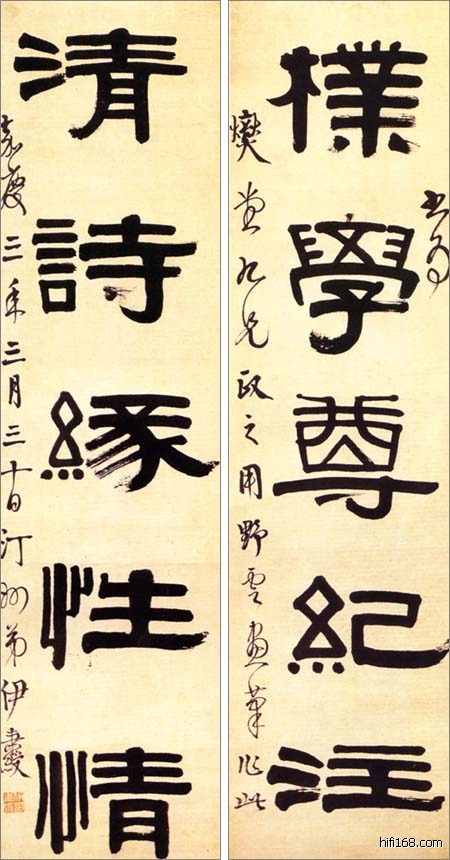 書為
樸學尊紀注
堂九兄政之用野雲畫筆作此
清詩緣性情
嘉慶三年三月三十日汀州弟伊秉綬
hifi168.com